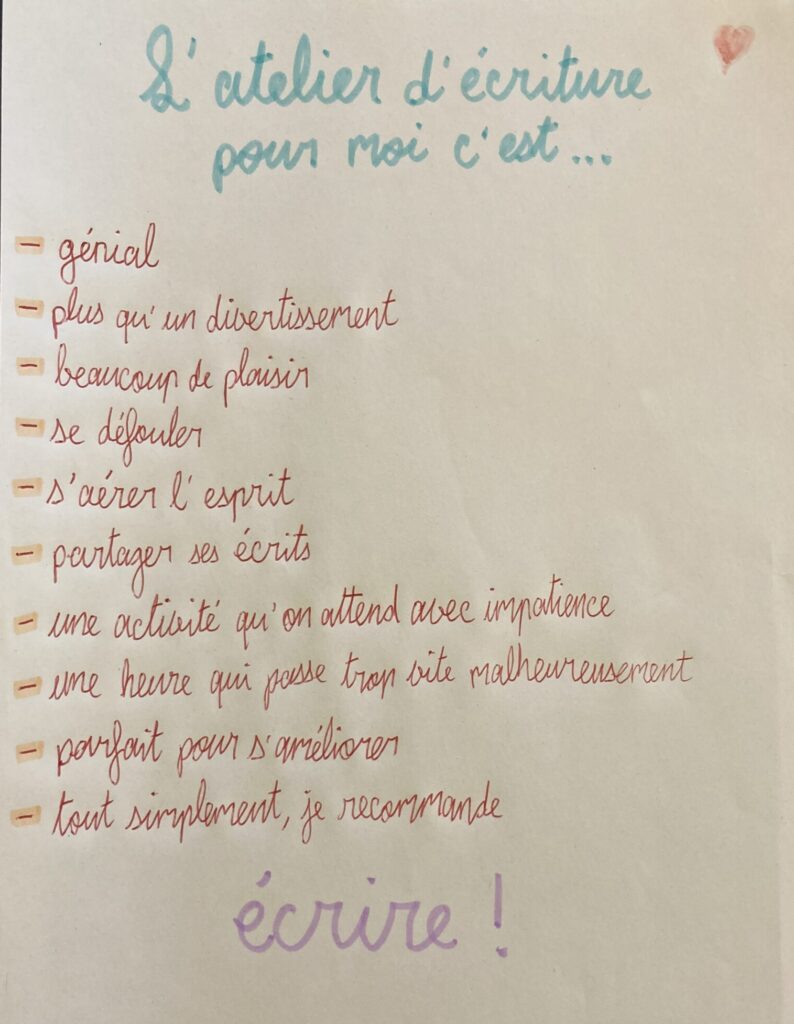 L'atelier d'écriture
pour moi c'est...
- génial
- plus qu'un divertissement
- beaucoup de plaisir
- se défouler
- s'aérer l'esprit
- partager ses écrits
- une activité qu'on attend avec impatience
- une heure qui passe trop vite malheureusement
- parfait pour s'améliorer
- tout simplement, je recommande
écrire !